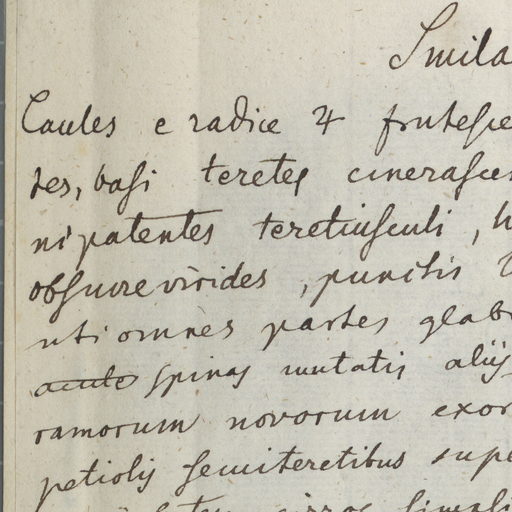 Smila
Caules e radice ♃ frutesce
tes, basi teretes cinerascen
ni patentes teretiusculi,
obscure virides, punctis
uti omnes partes glab
spinas mutatis aliis
ramorum novorum exor
petiolis semiteretibus supe
cirros simpli